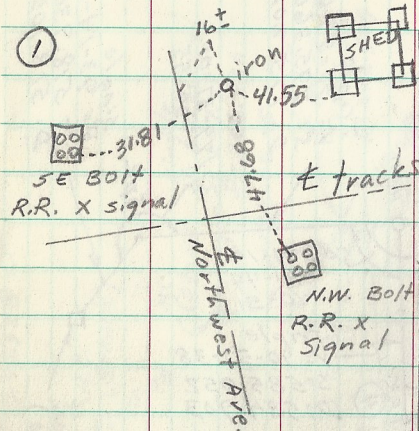 ①
16±
iron
SHED
41.55
31.81
47.68
SE Bolt
R.R. X signal
℄ tracks
℄
Northwest Ave.
N.W. Bolt
R.R. X
Signal